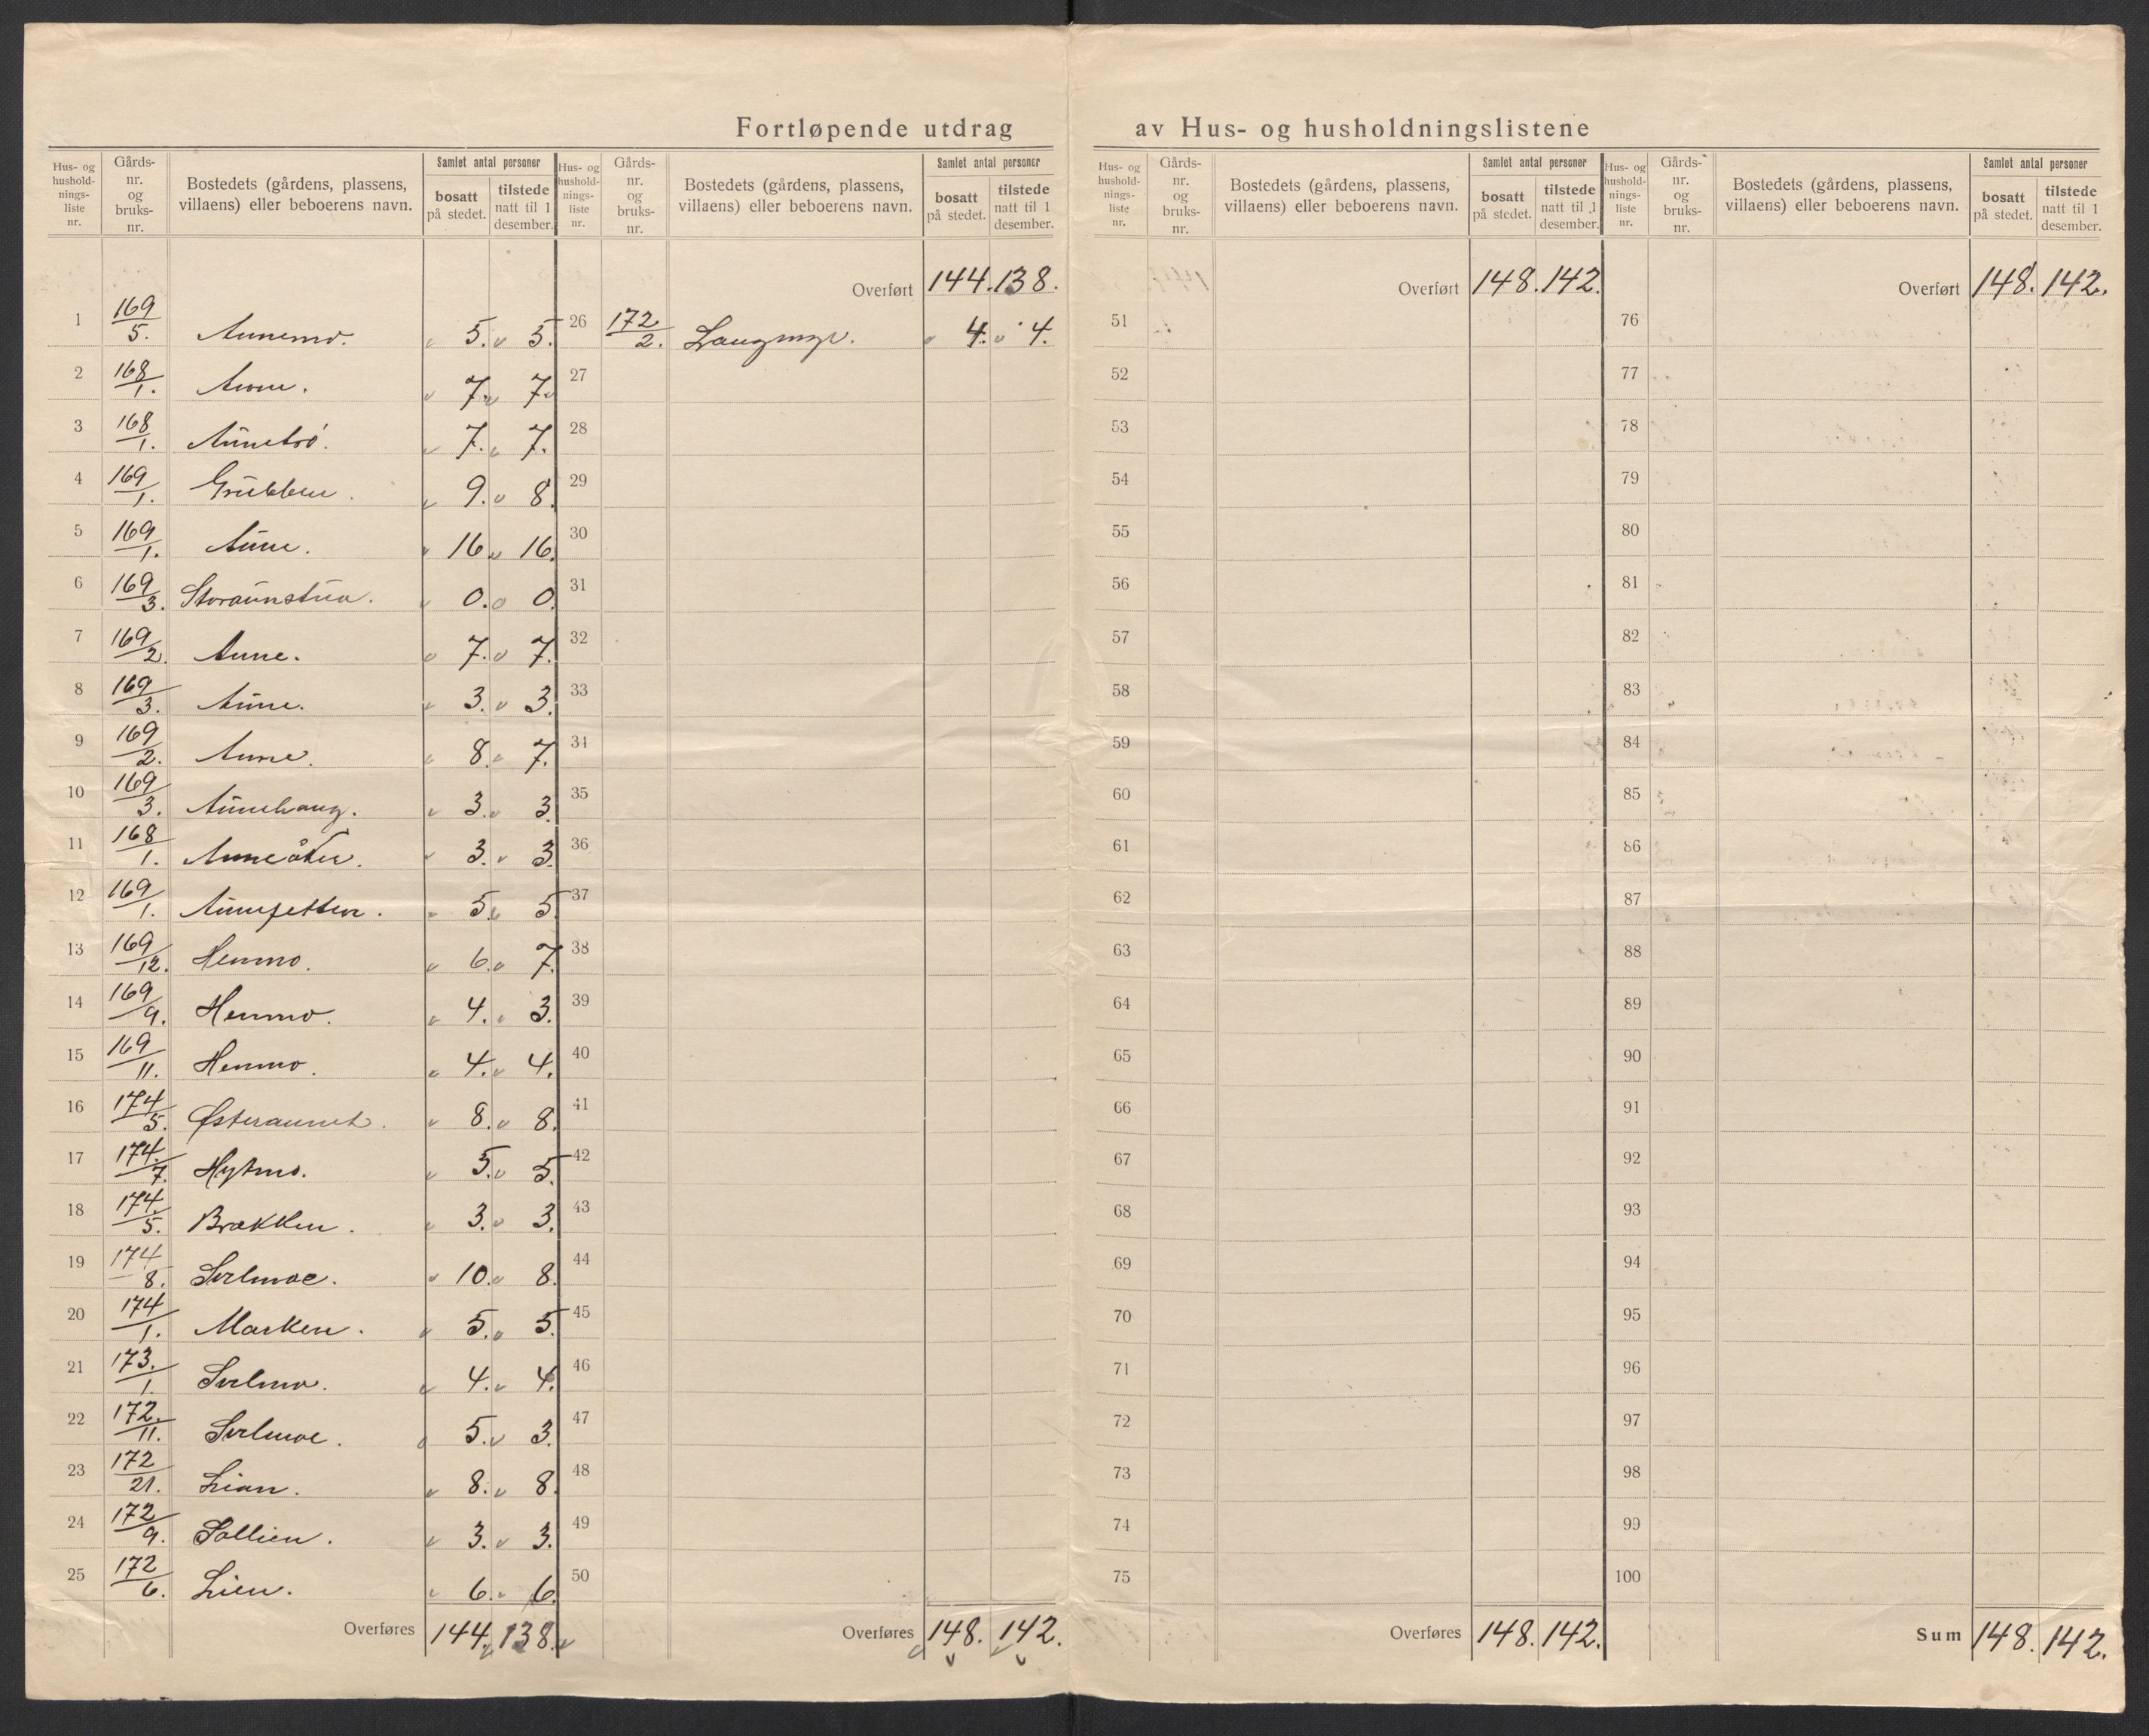 Fortløpende utdrag av Hus- og husholdningslistene
Hus- og hushold-nings-liste nr. Gårds-nr. og bruks-nr. Bostedets (gårdens, plassens, villaens) eller beboerens navn. Samlet antal personer bosatt på stedet. tilstede natt til 1 desember.
Hus- og hushold-nings-liste nr. Gårds-nr. og bruks-nr. Bostedets (gårdens, plassens, villaens) eller beboerens navn. Samlet antal personer bosatt på stedet. tilstede natt til 1 desember.
Hus- og hushold-nings-liste nr. Gårds-nr. og bruks-nr. Bostedets (gårdens, plassens, villaens) eller beboerens navn. Samlet antal personer bosatt på stedet. tilstede natt til 1 desember.
Hus- og hushold-nings-liste nr. Gårds-nr. og bruks-nr. Bostedets (gårdens, plassens, villaens) eller beboerens navn. Samlet antal personer bosatt på stedet. tilstede natt til 1 desember.
1 169/5. Aunemo. 5. 5.
2 168/1. Aune. 7. 7.
3 168/1. Aunetrø. 7. 7.
4 169/1. Grubben. 9. 8.
5 169/1. Aune. 16. 16.
6 169/3. Storaunstua. 0. 0.
7 169/2. Aune. 7. 7.
8 169/3. Aune. 3. 3.
9 169/2. Aune. 8. 7.
10 169/3. Aunehaug. 3. 3.
11 168/1. Auneåker. 3. 3.
12 169/1. 5. 5.
13 169/12. Henmo. 6. 7.
14 169/9. Henmo. 4. 3.
15 169/11. Henmo. 4. 4.
16 174/5. Østeraunet. 8. 8.
17 174/7. Hytmo. 5. 5.
18 174/5. Brækken. 3. 3.
19 174/8. 10. 8.
20 174/1. Marken. 5. 5.
21 173./1. 4. 4.
22 172./11. 5. 3.
23 172/21. Lian. 8. 8.
24 172/9. Sollien. 3. 3.
25 172/6. Lien. 6. 6.
Overføres 144. 138.
Overført 144. 138.
26 172/2. Langmyr. 4. 4.
27
28
29
30
31
32
33
34
35
36
37
38
39
40
41
42
43
44
45
46
47
48
49
50
Overføres 148. 142.
Overført 148. 142.
51
52
53
54
55
56
57
58
59
60
61
62
63
64
65
66
67
68
69
70
71
72
73
74
75
Overføres 148. 142.
Overført 148. 142.
76
77
78
79
80
81
82
83
84
85
86
87
88
89
90
91
92
93
94
95
96
97
98
99
100
Sum 148. 142.